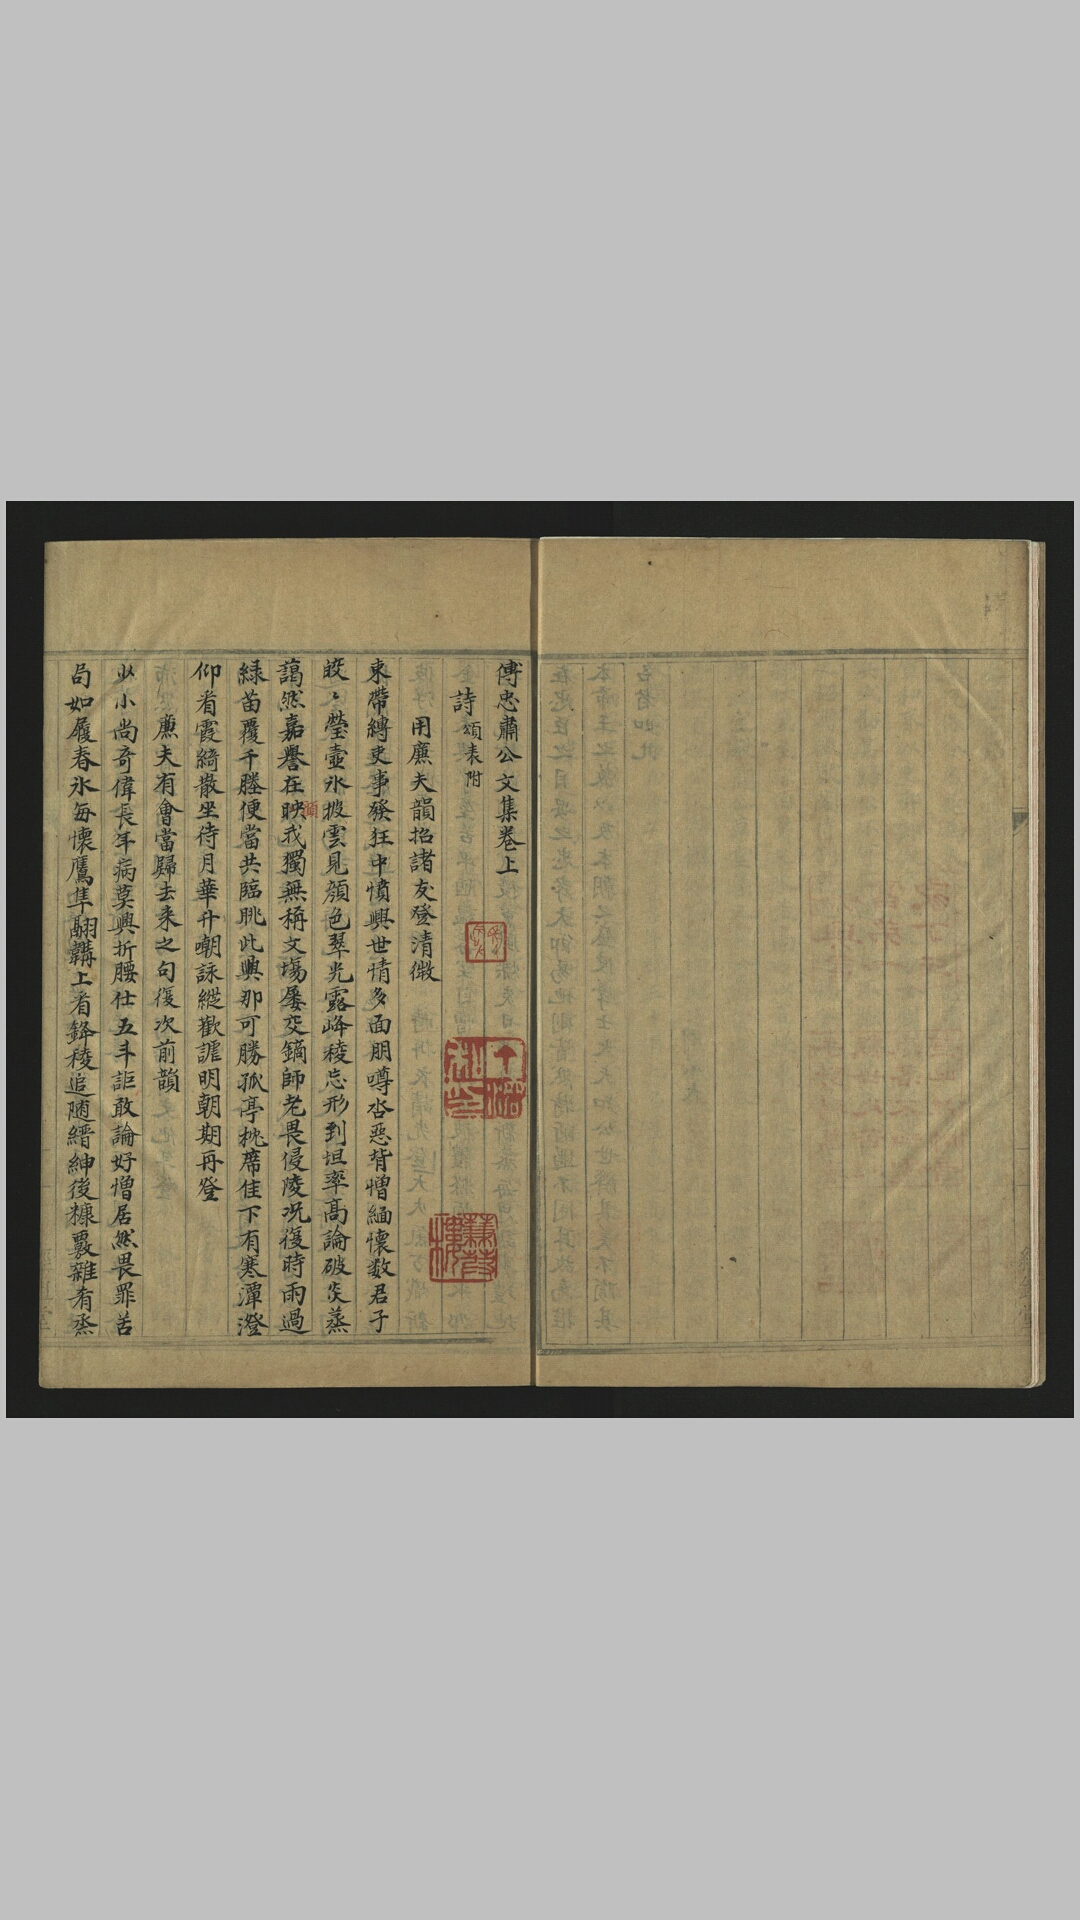 傅忠肅公文集卷上
詩 頌表附
用廉夫韻招諸友登清微
束帶縛吏事發狂中憤興世情多面朋噂沓惡背憎緬懷数君子
皎〻瑩壷氷披雲見顔色翠光露峰稜忘形到坦率高論破炎蒸
藹然嘉譽在映我獨無稱文塲屡交鏑師老畏侵陵况復時雨過
緑苗覆千塍便當共臨眺此興那可勝孤亭枕席佳下有寒潭澄
仰看霞綺散坐待月華升嘲詠縱歡謔明朝期再登
廉夫有會當歸去来之句復次前韻
少小尚奇偉長年病莫興折腰仕五斗詎敢論好憎居然畏罪苦
局如履春氷每懷鷹隼翮韝上看鋒稜追随縉紳後糠覈雜肴烝